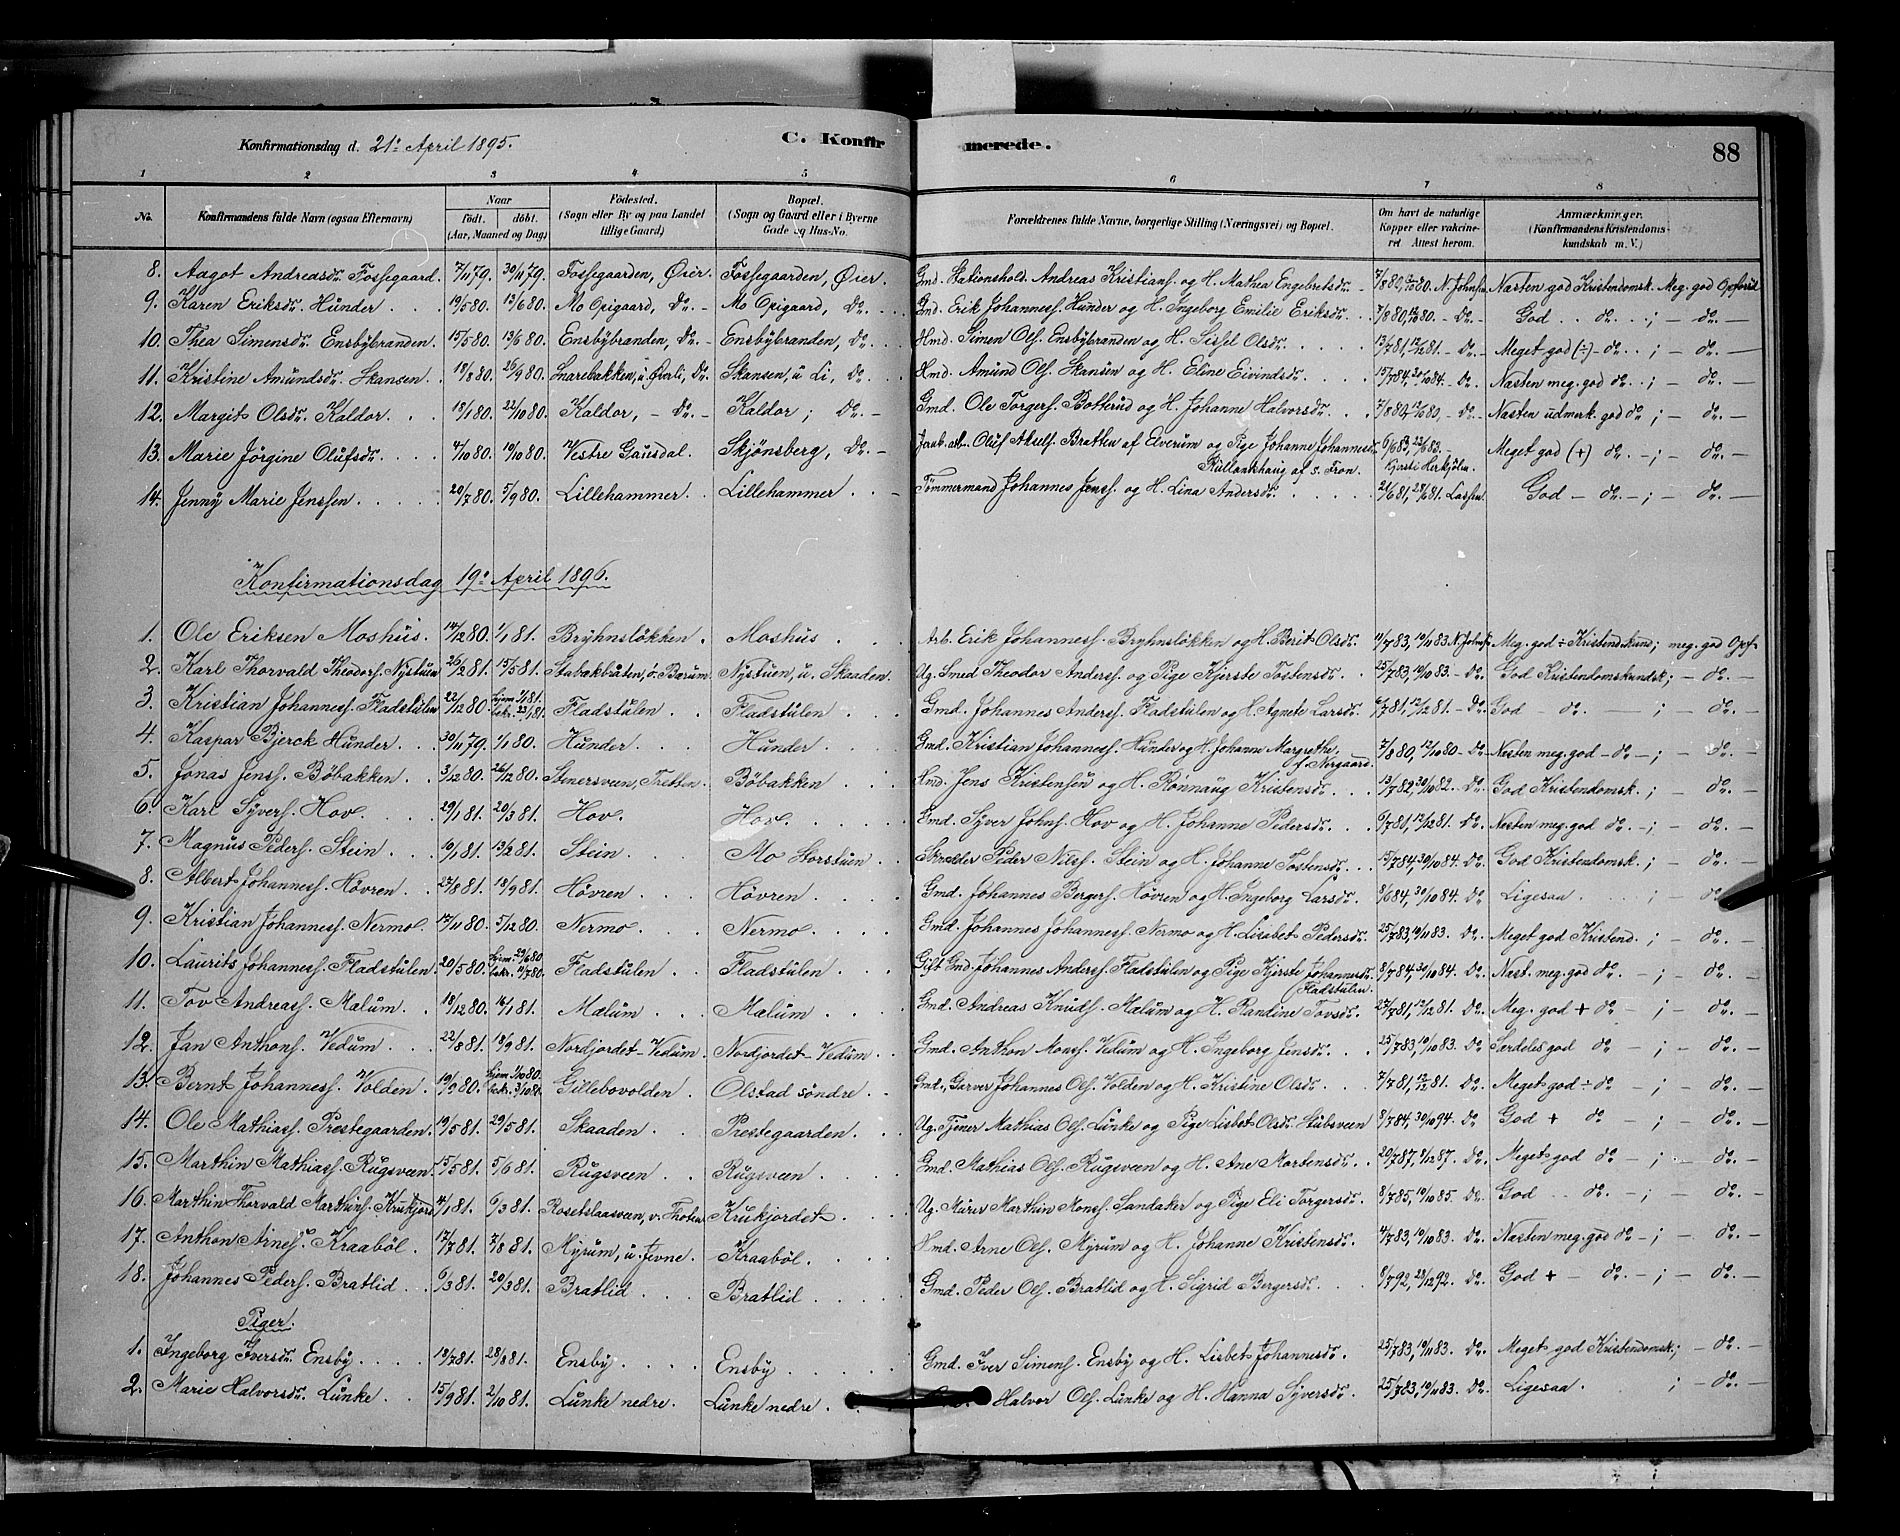 Konfirmationsdag d. 21de April 1895. C. Konfirmerede. 88
1 2 3 4 5 6 7 8
No. Konfirmandens fulde Navn (ogsaa Efternavn) Naar födt. döbt. (Aar, Maaned og Dag) Födested. (Sogn eller By og paa Landet tillige Gaard) Bopæl. (Sogn og Gaard eller i Byerne Gade og Hus-No. Forældrenes fulde Navne, borgerlige Stilling (Næringsvei) og Bopæl. Om havt de naturlige Kopper eller vakcineret Attest herom. Anmærkninger. (Konfirmandens Kristendomskundskab m. V.)
8. Aagot Andreasdr. Fossegaard. 7/11 79. 30/11 79. Fossegaarden, Øier. Fossegaarden, Øier. Gmd. Stationshold. Andreas Kristians. og H. Mathea Engebretsdr. 7/8 80, 12/10 80. N. Johnsen Næsten god Kristendomsk. Meg. god Opförsel
9. Karen Eriksdr. Hunder 19/5 80. 13/6 80. Mo Opigaard, Do. Mo Opigaard, Do. Gmd. Erik Johanness. Hunder og H. Ingeborg Emilie Eriksdr. 7/8 80, 12/10 80. - Do - God do. ; - do. -
10. Thea Simensdr. Ensbybranden 15/5 80. 13/6 80. Ensbybranden, Do. Ensbybranden, Do. Hmd. Simen Ols. Ensbybranden og H. Sissel Olsdr. 13/7 81, 12/12 81. - Do. Meget god (÷) - do. ; - do. -
11. Kristine Amundsdr. Skansen 18/8 80. 26/9 80. Snarebakken, u. Øverli, Do. Skansen, u. Li, Do. Hmd. Amund Ols. Skansen og H. Eline Eivindsdr. 15/7 84, 30/10 84. - Do. Næsten meg. god do. ; - do. -
12. Margit Olsdr. Kaldor. 18/1 80. 22/10 80. Kaldor, - Do. - Kaldor; Do. - Gmd. Ole Torgers. Botterud og H. Johanne Halvorsdr. 7/8 80, 12/6 80, - Do. - Næsten udmerk. god do. ; - do. -
13. Marie Jörgine Olufsdr. 4/10 80. 10/10 80. Vestre Gausdal. Skjönsberg, Do. - Oluf Aksels. Bratten af Elverum og Pige Johanne Johannesdr. 6/6 83, 22/6 83. Meget god (+) do. - ; - do. -
Kullonshaug af S. Fron.
14. Jenny Marie Jenssen. 20/7 80. 5/9 80. Lillehammer. Lillehammer Tömmermand Johannes Jenss. og H. Lina Andersdr. 21/6 81, 28/6 81. Lassen. God - do. - ; - do. -
Konfirmationsdag 19de April 1896.
1. Ole Eriksen Moshus. 14/12 80. 1/1 81. Bryhnslökken. Moshus Arb. Erik Johanness. Bryhnslökken og H. Berit Olsdr. 11/7 83, 10/11 83 N. Johnsen Meg. god ÷ Kristendkund; meg. god Opf.
2. Karl Thorvald Theodors. Nystuen 26/2 81. 15/5 81. Stabakbråten, ö. Bærum. Nystuen, u. Skaaden. Ug. Smed Theodor Anderss. og Pige Kjerste Tostensdr. 25/7 83, 10/10 83. - Do God Kristendomskundsk; - do. -
3. Kristian Johanness. Fladstulen 22/12 80. hjem. 1/1 81. bekr. 23/1 81. Fladstulen Fladstulen Gmd. Johannes Anderss. Fladstulen og H. Agnete Larsdr. 6/7 81, 12/12 81. - Do God - do. - ; - do. -
4. Kaspar Bjerck Hunder 30/11 79. 1/1 80. Hunder Hunder Gmd. Kristian Johanness. Hunder og H. Johanne Margrethe 7/8 80, 12/10 80 - Do Næsten meg. god - do - ; - do. -
f. Norgaard.
5. Jonas Jenss. Böbakken 3/12 80. 26/12 80. Stenersveen, Tretten. Böbakken Hmd. Jens Kristensen og H. Rønnaug Kristensdr. 13/7 82, 30/10 82. - Do. God Kristendomsk. ; - do. -
6. Karl Syvers. Hov. 29/1 81. 20/3 81. Hov. Hov. Gmd. Syver Johns. Hov og H. Johanne Pedersdr. 6/7 81, 12/12 81. Do. Næsten meg. god do. - ; - do. -
7. Magnus Peders. Stein 10/1 81. 13/2 81. Stein Mo Storstuen Skrædder Peder Nilss. Stein og H. Johanne Tostensdr. 15/7 84, 30/10 84 Do. God Kristendomsk. ; - do. -
8. Albert Johanness. Hövren 27/8 81. 18/9 81. Hövren Hövren Gmd. Johannes Bergers. Hövren og H. Ingeborg Larsdr. 8/6 84, 30/10 84. Do. Ligesaa ; - do.
9. Kristian Johanness. Nermo. 17/11 80. 5/12 80. Nermo. Nermo. Gmd. Johannes Johanness. Nermo og H. Lisabet Pedersdr. 25/7 83, 10/11 83. Do. Meget god Kristend. ; - do. -
10. Laurits Johanness. Fladstulen. 20/5 80. hjem. 29/6 80. bekr. 11/7 80. Fladstulen Fladstulen Gift Gmd. Johannes Anderss. Fladstulen og Pige Kjerste Johannesdr. 8/7 84, 30/10 84. Do. Næst. meg. god do. - ; - do. -
Fladstulen.
11. Tov Andreass. Mælum. 18/12 80. 16/1 81. Mælum Mælum Gmd. Andreas Knuds. Mælum og H. Randine Tovsdr. 27/7 81, 12/12 81. Do. Meg. god + do - ; - do. -
12. Jan Anthons. Vedum 22/8 81. 18/9 81. Nordjordet - Vedum. Nordjordet - Vedum Gmd. Anthon Monss. Vedum og H. Ingeborg Jensdr. 25/7 83, 10/10 83. Do. Særdeles god do - ; - do. -
13. Bernt Johanness. Volden 19/9 80. hjem. 1/10 80. bekr. 3/10 80. Gillebovolden. Olstad söndre. Gmd., Garver Johannes Ols. Volden og H. Kristine Olsdr. 7/7 81, 12/12 81. Do. Meget god ÷ do ; - do. -
14. Ole Mathiass. Prestegaarden. 19/5 81. 29/5 81. Skaaden Prestegaarden. Ug. Tjener Mathias Ols. Lunke og Pige Lisbet Olsdr. Stubsveen 8/7 84, 30/10 94. Do. God + do - ; - do. -
15. Marthin Mathiass. Rugsveen. 15/5 81. 5/6 81. Rugsveen Rugsveen Gmd. Mathias Ols. Rugsveen og H. Ane Mortensdr. 20/7 87, 8/12 87. Do. Meget god do - ; - do. -
16. Marthin Thorvald Marthins. Krukjord 14/1 81. 6/3 81. Rosetslaasveen, v. Thoten Krukjordet Ug. Murer Marthin Monss. Sandaker og Pige Eli Torgersdr. 8/7 85, 10/10 85. Do. God do. - ; - do. -
17. Anthon Arnes. Kraaböl. 17/7 81. 7/8 81. Myrum, u. Jevne. Kraaböl. Hmd. Arne Ols. Myrum og H. Johanne Kristensdr. 4/7 83, 10/10 83. Do. Næsten meg. god do - ; - do. -
18. Johannes Peders. Bratlid 6/3 81. 20/3 81. Bratlid Bratlid Gmd. Peder Ols. Bratlid og H. Sigrid Bergersdr. 8/7 92, 23/12 92. Do. God + - do. - ; - do. -
Piger.
1. Ingeborg Iversdr. Ensby 19/7 81. 28/8 81. Ensby Ensby Gmd. Iver Simens. Ensby og H. Lisbet Johannesdr. 25/7 83, 10/11 83. Do. Meget god Kristendomsk; - do. -
2. Marie Halvorsdr. Lunke 15/9 81. 2/10 81. Lunke nedre. Lunke nedre. Halvor Ols. Lunke og H. Hanna Syversdr. 25/7 83, 10/11 83. Do. Ligesaa. ; - do. -